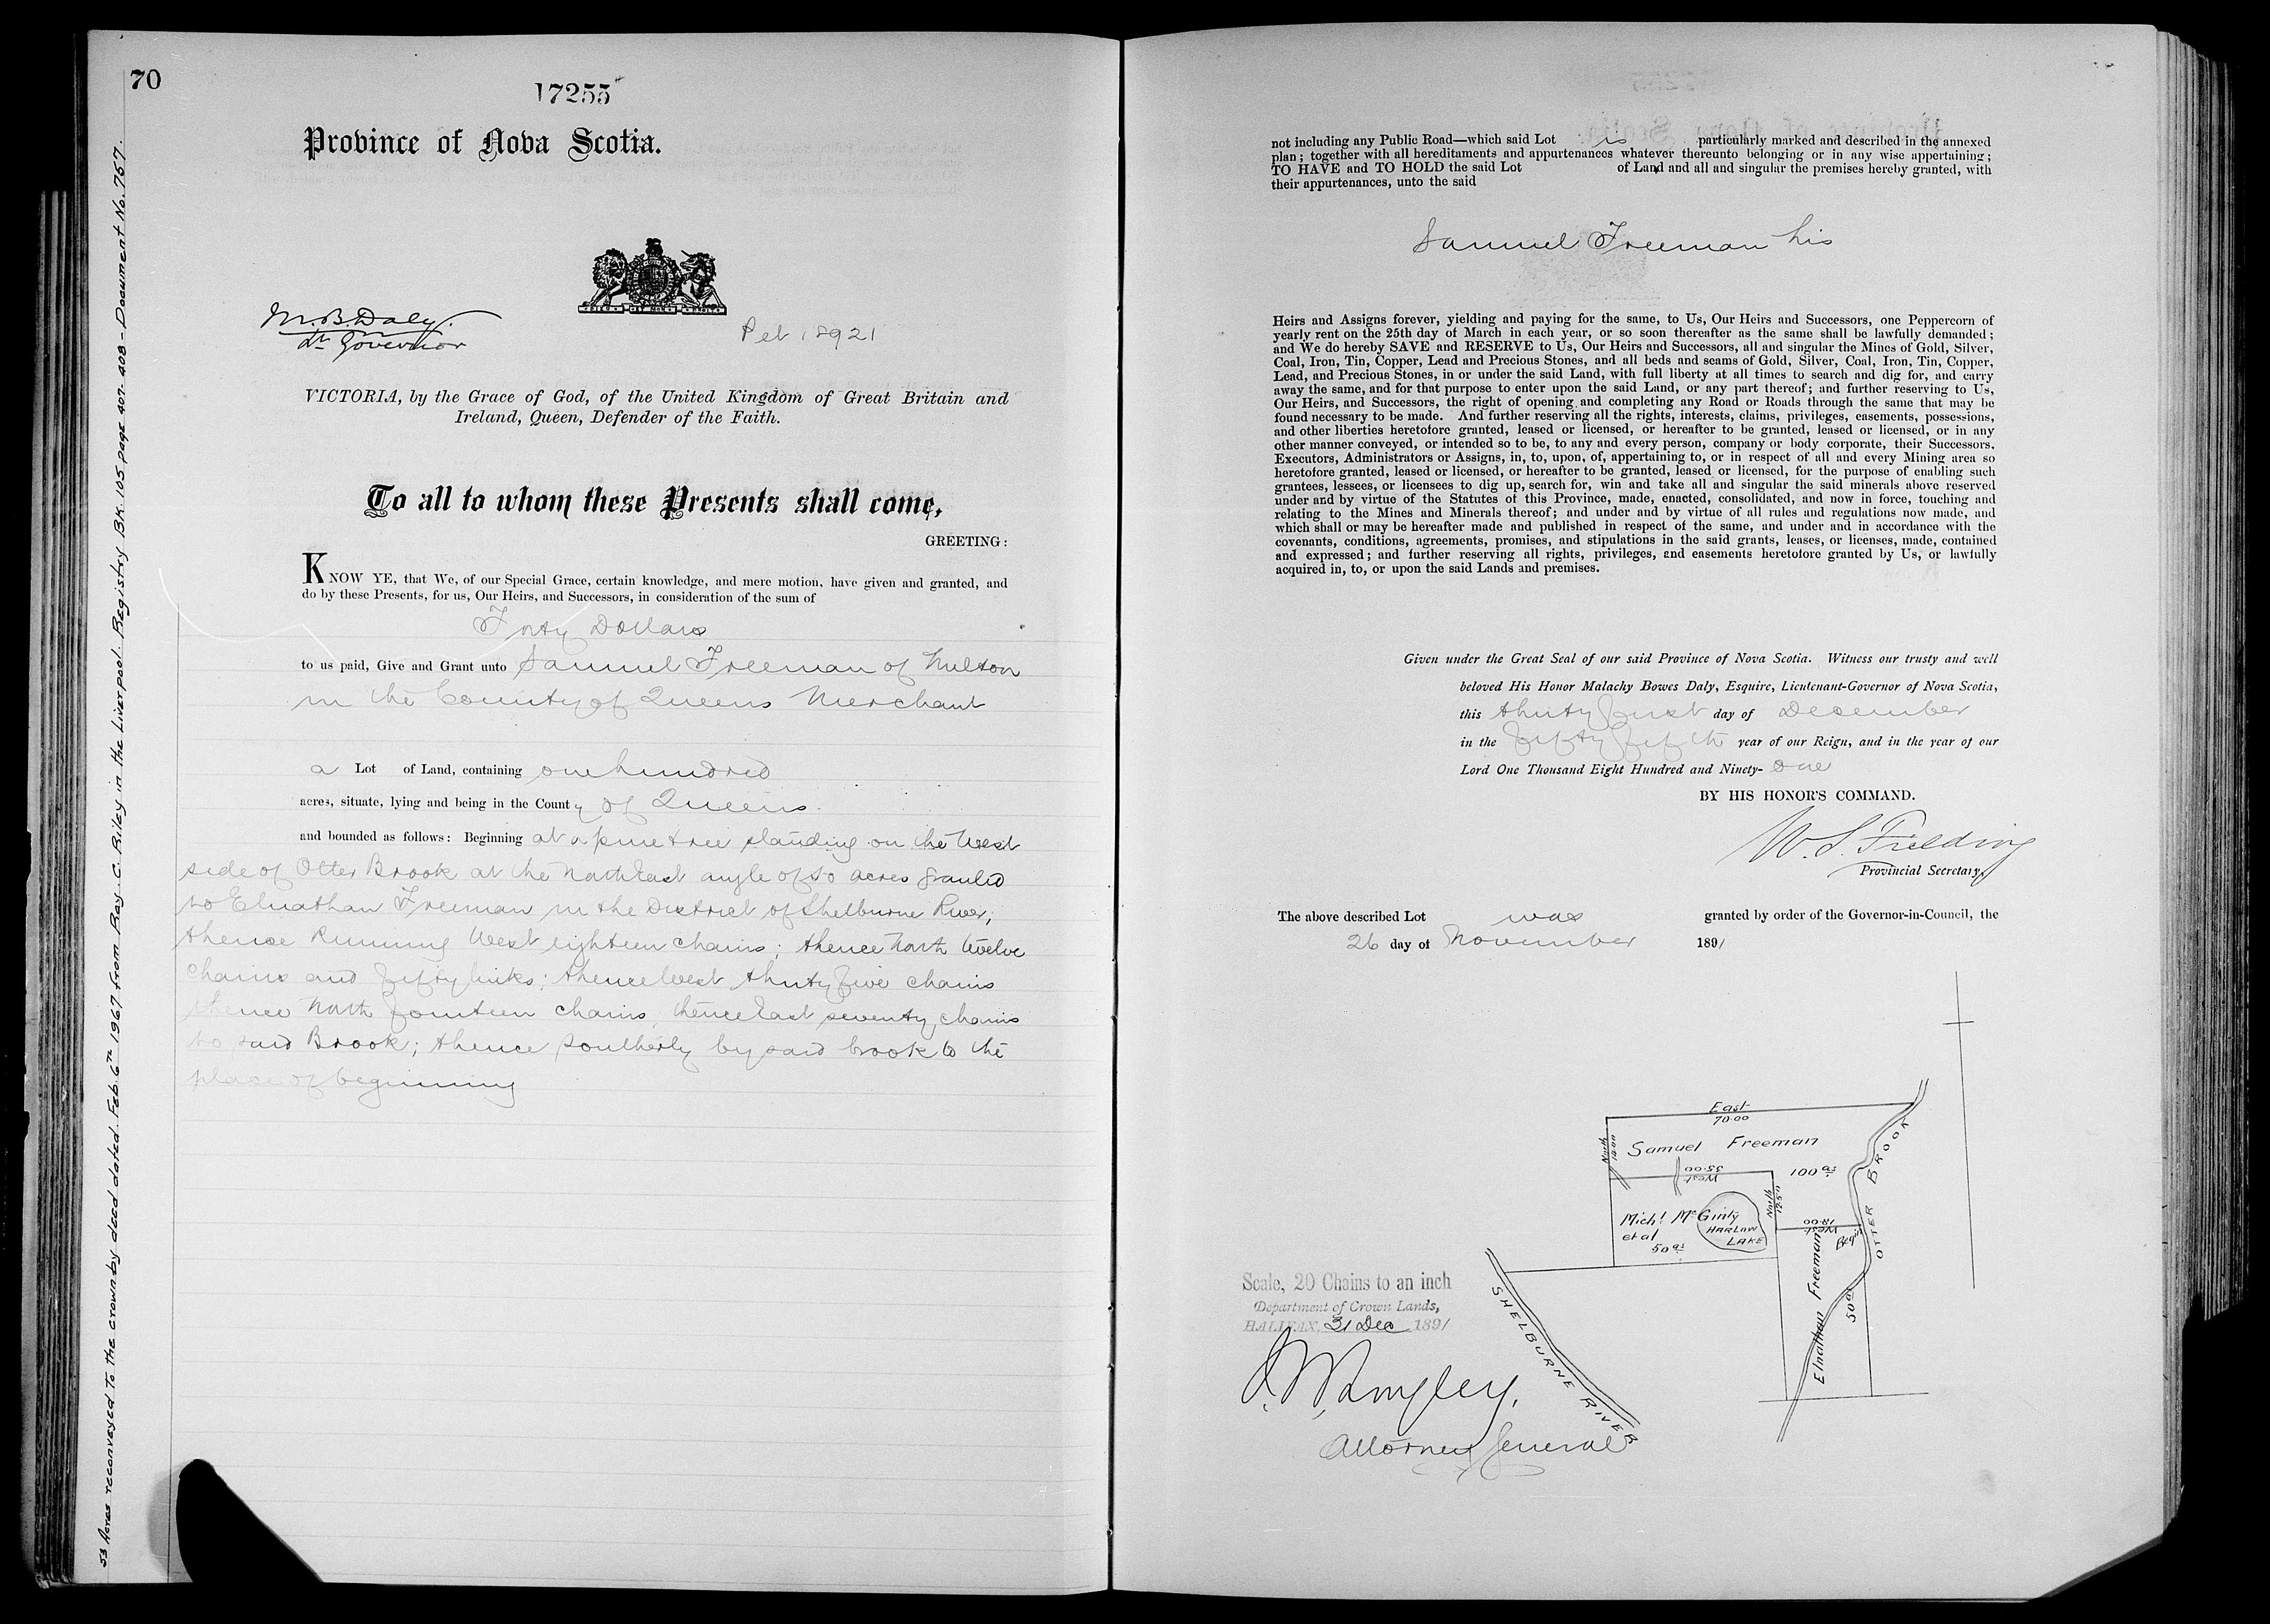 70
17255
Province of Nova Scotia.
M.B. Daly.
Lt Governor
Pet 18921
VICTORIA, by the Grace of God, of the United Kingdom of Great Britain and
Ireland, Queen, Defender of the Faith.
To all to whom these Presents shall come,
GREETING:
KNOW YE, that We, of our Special Grace, certain knowledge, and mere motion, have given and granted, and
do by these Presents, for us, Our Heirs, and Successors, in consideration of the sum of
Forty Dollars
to us paid, Give and Grant unto Samuel Freeman of Milton
in the County of Queens Merchant
a Lot of Land, containing one hundred
acres, situate, lying and being in the County of Queens.
and bounded as follows: Beginning at a pine tree standing on the West
side of Otter Brook at the North East angle of 50 acres granted
to Elnathan Freeman in the District of Shelburne River;
thence Running West eighteen chains; thence North twelve
chains and fifty links; thence West thirty five chains
thence North fourteen chains, thence East seventy chains
to said Brook; thence Southerly by said brook to the
place of beginning
53 Acres reconveyed to the crown by deed dated Feb. 6th 1967 from Ray. C. Riley in the Liverpool Registry BK. 105 page 407-408 - Document No. 767.
not including any Public Road—which said Lot is particularly marked and described in the annexed
plan; together with all hereditaments and appurtenances whatever thereunto belonging or in any wise appertaining;
TO HAVE and TO HOLD the said Lot of Land and all and singular the premises hereby granted, with
their appurtenances, unto the said
Samuel Freeman his
Heirs and Assigns forever, yielding and paying for the same, to Us, Our Heirs and Successors, one Peppercorn of
yearly rent on the 25th day of March in each year, or so soon thereafter as the same shall be lawfully demanded;
and We do hereby SAVE and RESERVE to Us, Our Heirs and Successors, all and singular the Mines of Gold, Silver,
Coal, Iron, Tin, Copper, Lead and Precious Stones, and all beds and seams of Gold, Silver, Coal, Iron, Tin, Copper,
Lead, and Precious Stones, in or under the said Land, with full liberty at all times to search and dig for, and carry
away the same, and for that purpose to enter upon the said Land, or any part thereof; and further reserving to Us,
Our Heirs, and Successors, the right of opening and completing any Road or Roads through the same that may be
found necessary to be made. And further reserving all the rights, interests, claims, privileges, easements, possessions,
and other liberties heretofore granted, leased or licensed, or hereafter to be granted, leased or licensed, or in any
other manner conveyed, or intended so to be, to any and every person, company or body corporate, their Successors.
Executors, Administrators or Assigns, in, to, upon, of, appertaining to, or in respect of all and every Mining area so
heretofore granted, leased or licensed, or hereafter to be granted, leased or licensed, for the purpose of enabling such
grantees, lessees, or licensees to dig up, search for, win and take all and singular the said minerals above reserved
under and by virtue of the Statutes of this Province, made, enacted, consolidated, and now in force, touching and
relating to the Mines and Minerals thereof; and under and by virtue of all rules and regulations now made, and
which shall or may be hereafter made and published in respect of the same, and under and in accordance with the
covenants, conditions, agreements, promises, and stipulations in the said grants, leases, or licenses, made, contained
and expressed; and further reserving all rights, privileges, and easements heretofore granted by Us, or lawfully
acquired in, to, or upon the said Lands and premises.
Given under the Great Seal of our said Province of Nova Scotia. Witness our trusty and well
beloved His Honor Malachy Bowes Daly, Esquire, Lieutenant-Governor of Nova Scotia,
this thirty first day of December
in the fifty fifth year of our Reign, and in the year of our
Lord One Thousand Eight Hundred and Ninety- One
BY HIS HONOR'S COMMAND.
W. S. Fielding
Provincial Secretary,
The above described Lot was granted by order of the Governor-in-Council, the
26 day of November 1891
East
70.00
North
14.00
Samuel Freeman
35.00
West
100 as
North
12.50
Mich! McGinty
et al
50 as
HARLOW
LAKE
18.00
West
Begin
OTTER BROOK
Elnathan Freeman
50 as
SHELBURNE RIVER
Scale, 20 Chains to an inch
Department of Crown Lands,
HALIFAX, 31 Dec 1891
J. W. Longley,
Attorney General